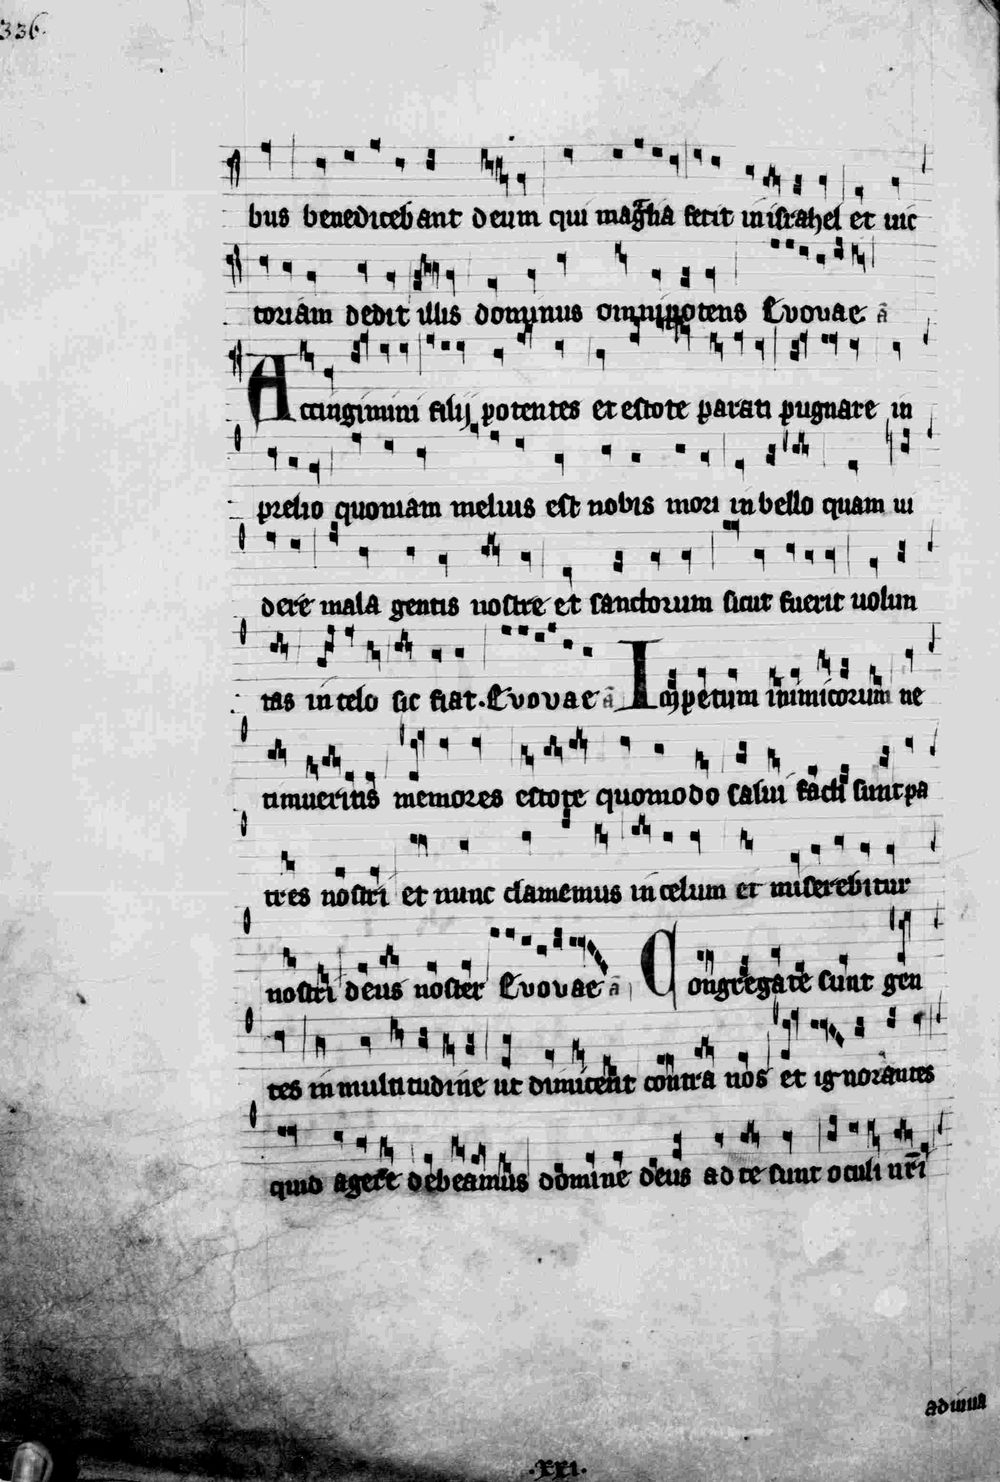 336.
bus benedicebant deum qui mag̅na fecit in israhel et uic
toriam dedit illis dominus omnipotens Euouae a̅
Accingimini filij potentes et estote parati pugnare in
prelio quoniam melius est nobis mori in bello quam ui
dere mala gentis nostre et sanctorum sicut fuerit uolun
tas in celo sic fiat. Euouae a̅ Impetum inimicorum ne
timueritis memores estote quomodo salui facti sunt pa
tres nostri et nunc clamemus in celum et miserebitur
nostri deus noster Euouae a̅ Congregate sunt gen
tes in multitudine ut dimicent contra nos et ignorantes
quid agere debeamus domine deus ad te sunt oculi nr̅i
.xxi.